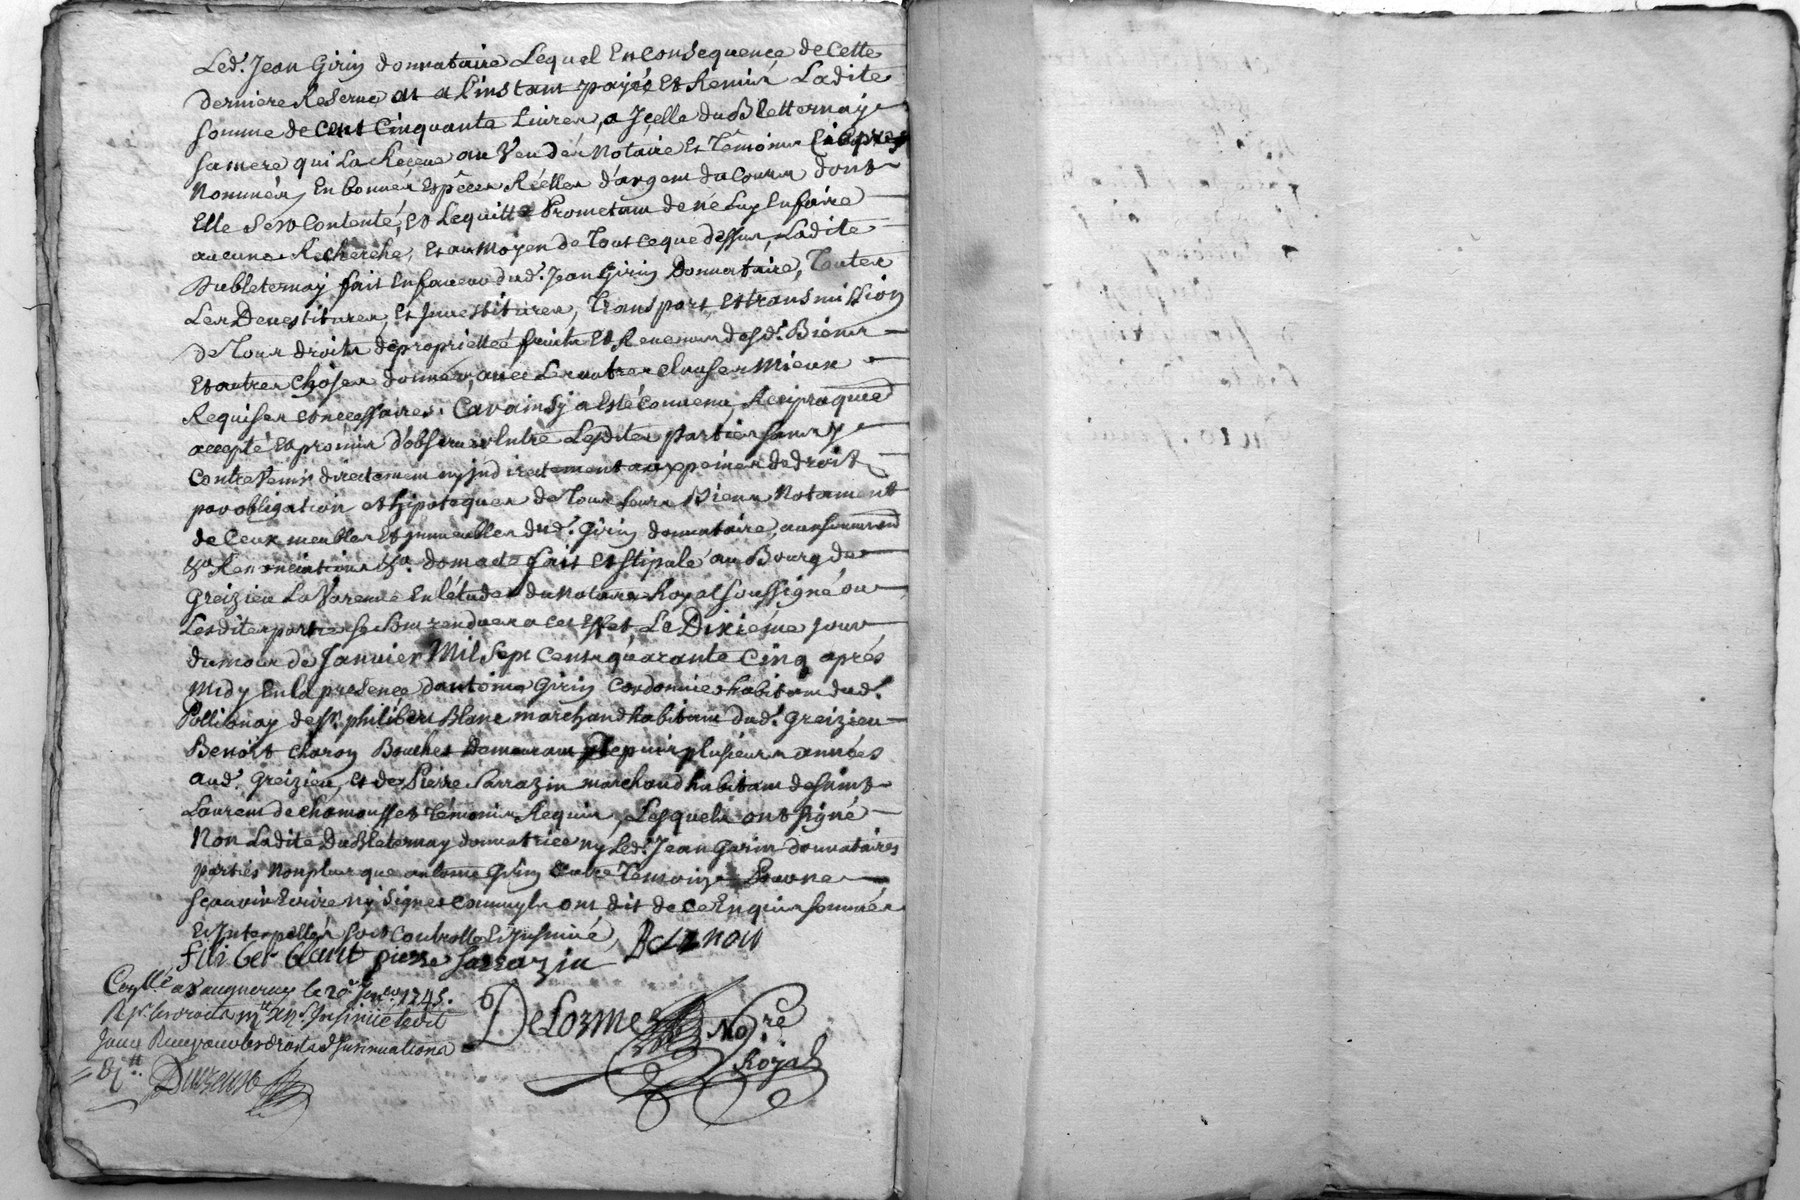 Led. Jean Girin donnataire Lequel En Consequence de Cette
derniere Reserve at a l'instant payés Et Remis Ladite
somme de Cent Cinquante Livres, a Jcelle du Bletternay
sa mere qui La Reçeue au veu des Notaire Et Témoins Ciapres
Nommés En bonnes Espéces Réelles d'argent du Cours dont
Elle Se'st Contenté, Et Lequitte Prometant de ne Luy En faire
aucune Recherche, Et au moyen de Tout Ce que dessus, Ladite
Dubleternay fait En faveur dud. Jean Girin Donnataire, Toutes
Les Devestitures Et Jnvestitures, Transport, Et transmission
de Tous droits de proprietté fruits Et Revenus desd. Biens
Et autres Choses donnés, avec Les autres Clauses Mieux
Requises Et necessaires. Car ainsy a Esté Convenu, Reciproquemt
accepté Et promis d'observer Entre Lesdites parties sans y
Contrevenir directement ny Jndirectement aux peines de droit
par obligation et hipoteques de Tous leurs Biens Notament
de Ceux meubles Et Jmmeubles dud. Girin donnataire, aux soumissions
Renonciations &a. dom acte fait Et stipulé au Bourg de
Greizieu La Varenne En l'étude du Notaire Royal soussigné ou
Lesdites parties se sont rendues a Cet Effet Le Dixiéme Jour
du mois de Janvier Mil Sept Cents quarante Cinq aprés
Midy En la presence d'antoine Girin Cordonnier habitant dud.
Pollionay de Sr. philibert Blanc marchand habitant dud. Greizieu
Benoist Charon Boucher Demeurant Depuis plusieurs années
aud. Greizieu, Et de Pierre Sarrazin marchand habitant de saint
Laurent de Chamousset Témoins Requis, Lesquels ont signé
Non Ladite Dubleternay donnatrice ny Led. Jean Girin donnataires
parties Non plus que antoine Girin Autre Temoins Pour ne
sçavoir Ecrire ny Signer Comme ils ont dit de Ce Enquis sommés
Et Jnterpellés soit Controllé Et Jnsinué,
filiber blanc pierre Sarrazin
Conllé a Vaugneray le 20e Janv. 1745.
Delorme Nore
Royal